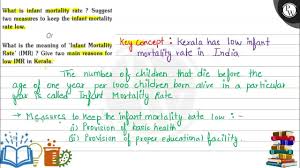 What is infant mortality rate ? Suggest
two measures to keep the infant mortality
rate low.
Or
What is the meaning of 'Infant Mortality
Rate' (IMR) ? Give two main reasons for
low IMR in Kerala.
Key concept : Kerala has low infant
mortality rate in India
The number of children that die before the
age of one year per 1000 children born alive in a particular
year is called Infant Mortality Rate
→ Measures to keep the infant mortality rate low :-
(i) Provision of basic health
(ii) Provision of proper educational facility